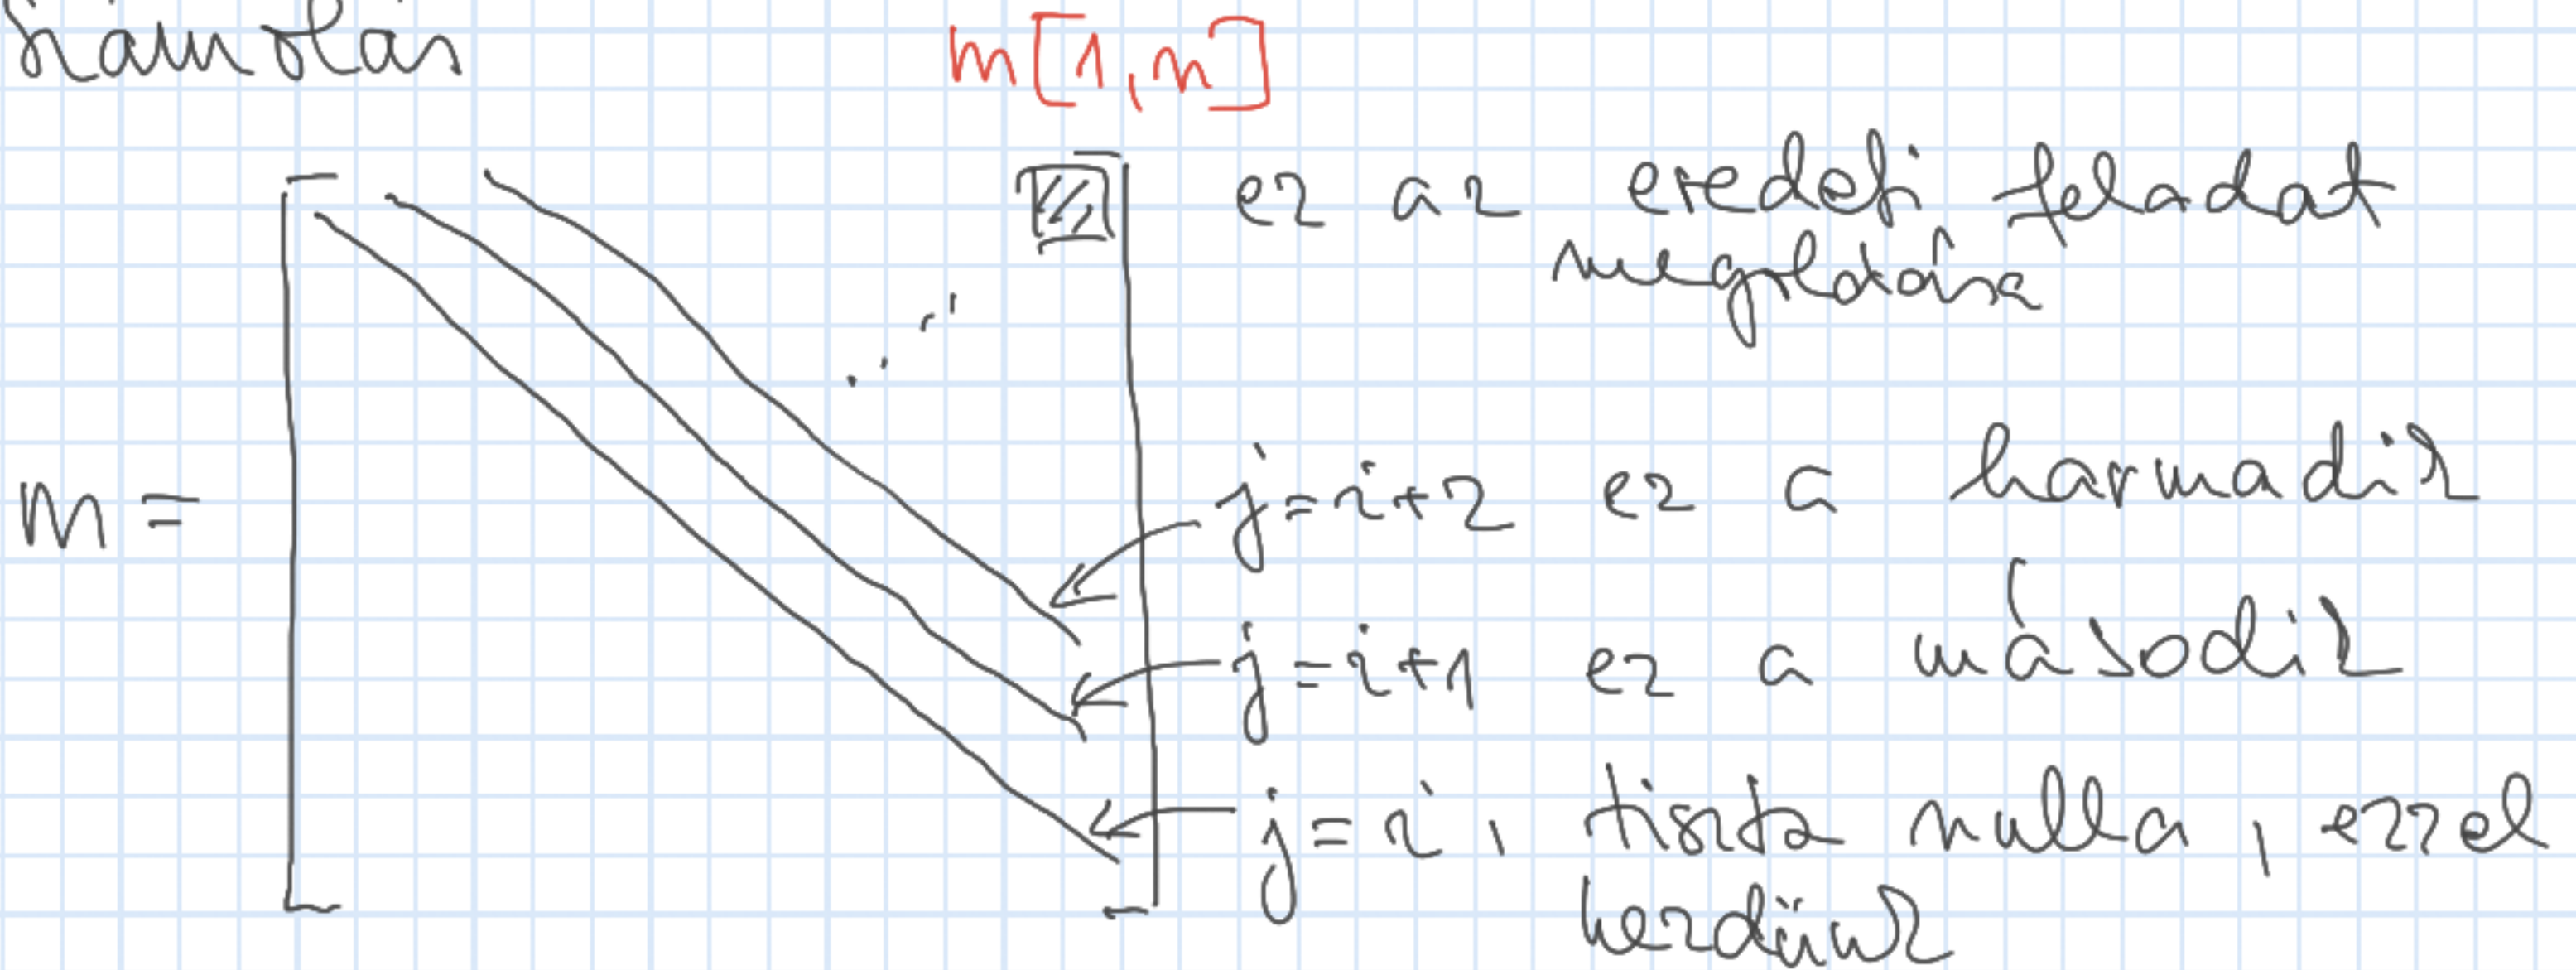 számolás
m[1,n]
ez az eredeti feladat
megoldása
m =
j=i+2 ez a harmadik
j=i+1 ez a második
j=i, tiszta nulla, ezzel
kezdünk